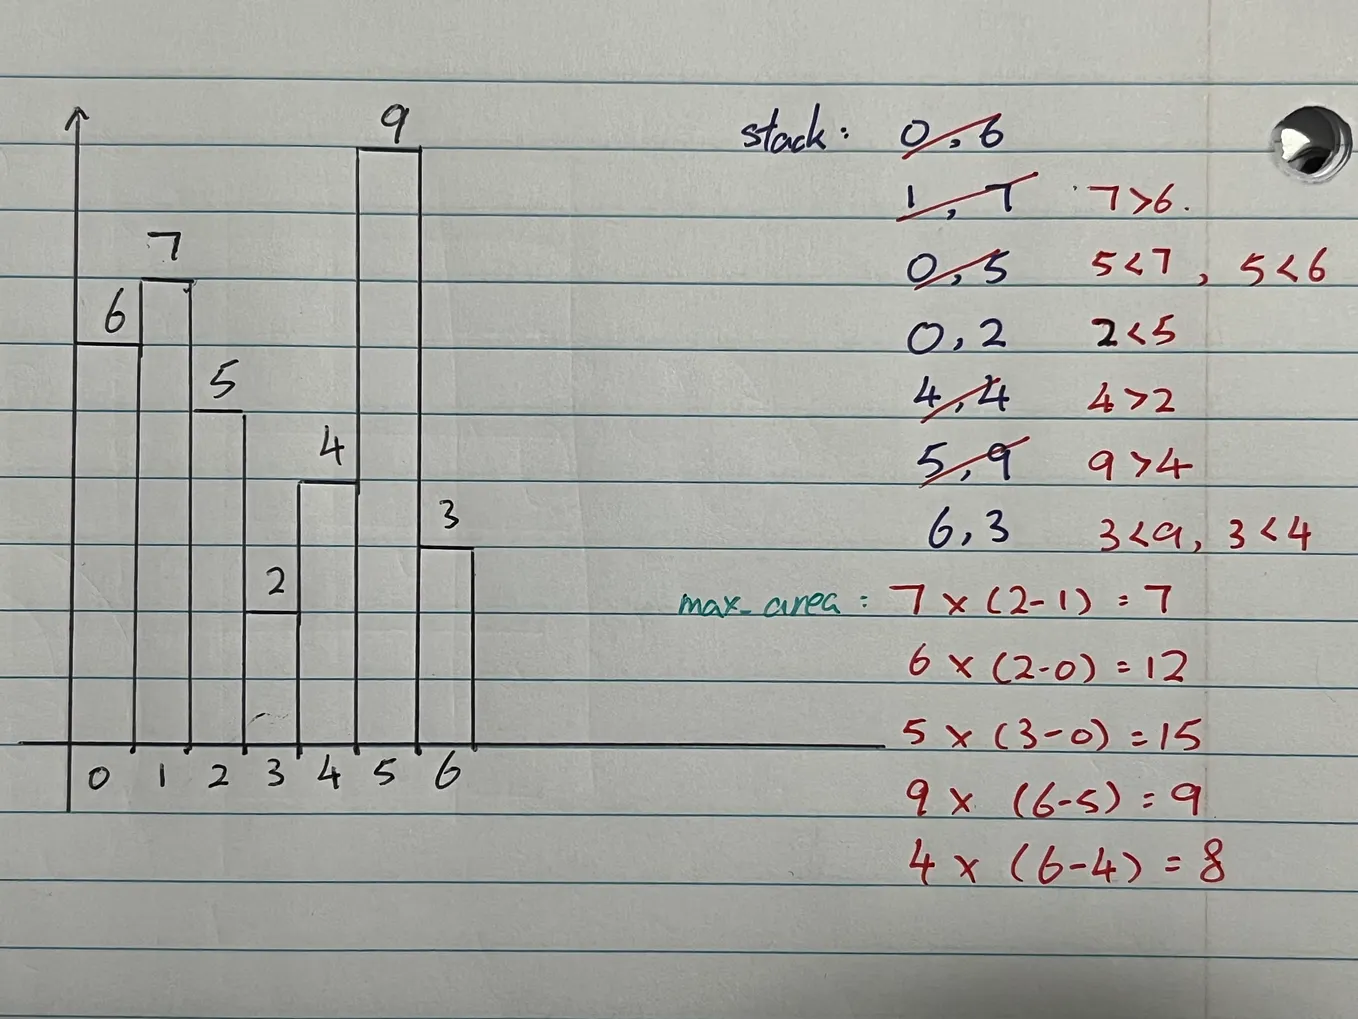 9
7
6
5
4
3
2
0 1 2 3 4 5 6
stack: 0, 6
1, 7 7>6.
0, 5 5<7, 5<6
0, 2 2<5
4, 4 4>2
5, 9 9>4
6, 3 3<9, 3<4
max_area: 7 × (2-1) = 7
6 × (2-0) = 12
5 × (3-0) = 15
9 × (6-5) = 9
4 × (6-4) = 8